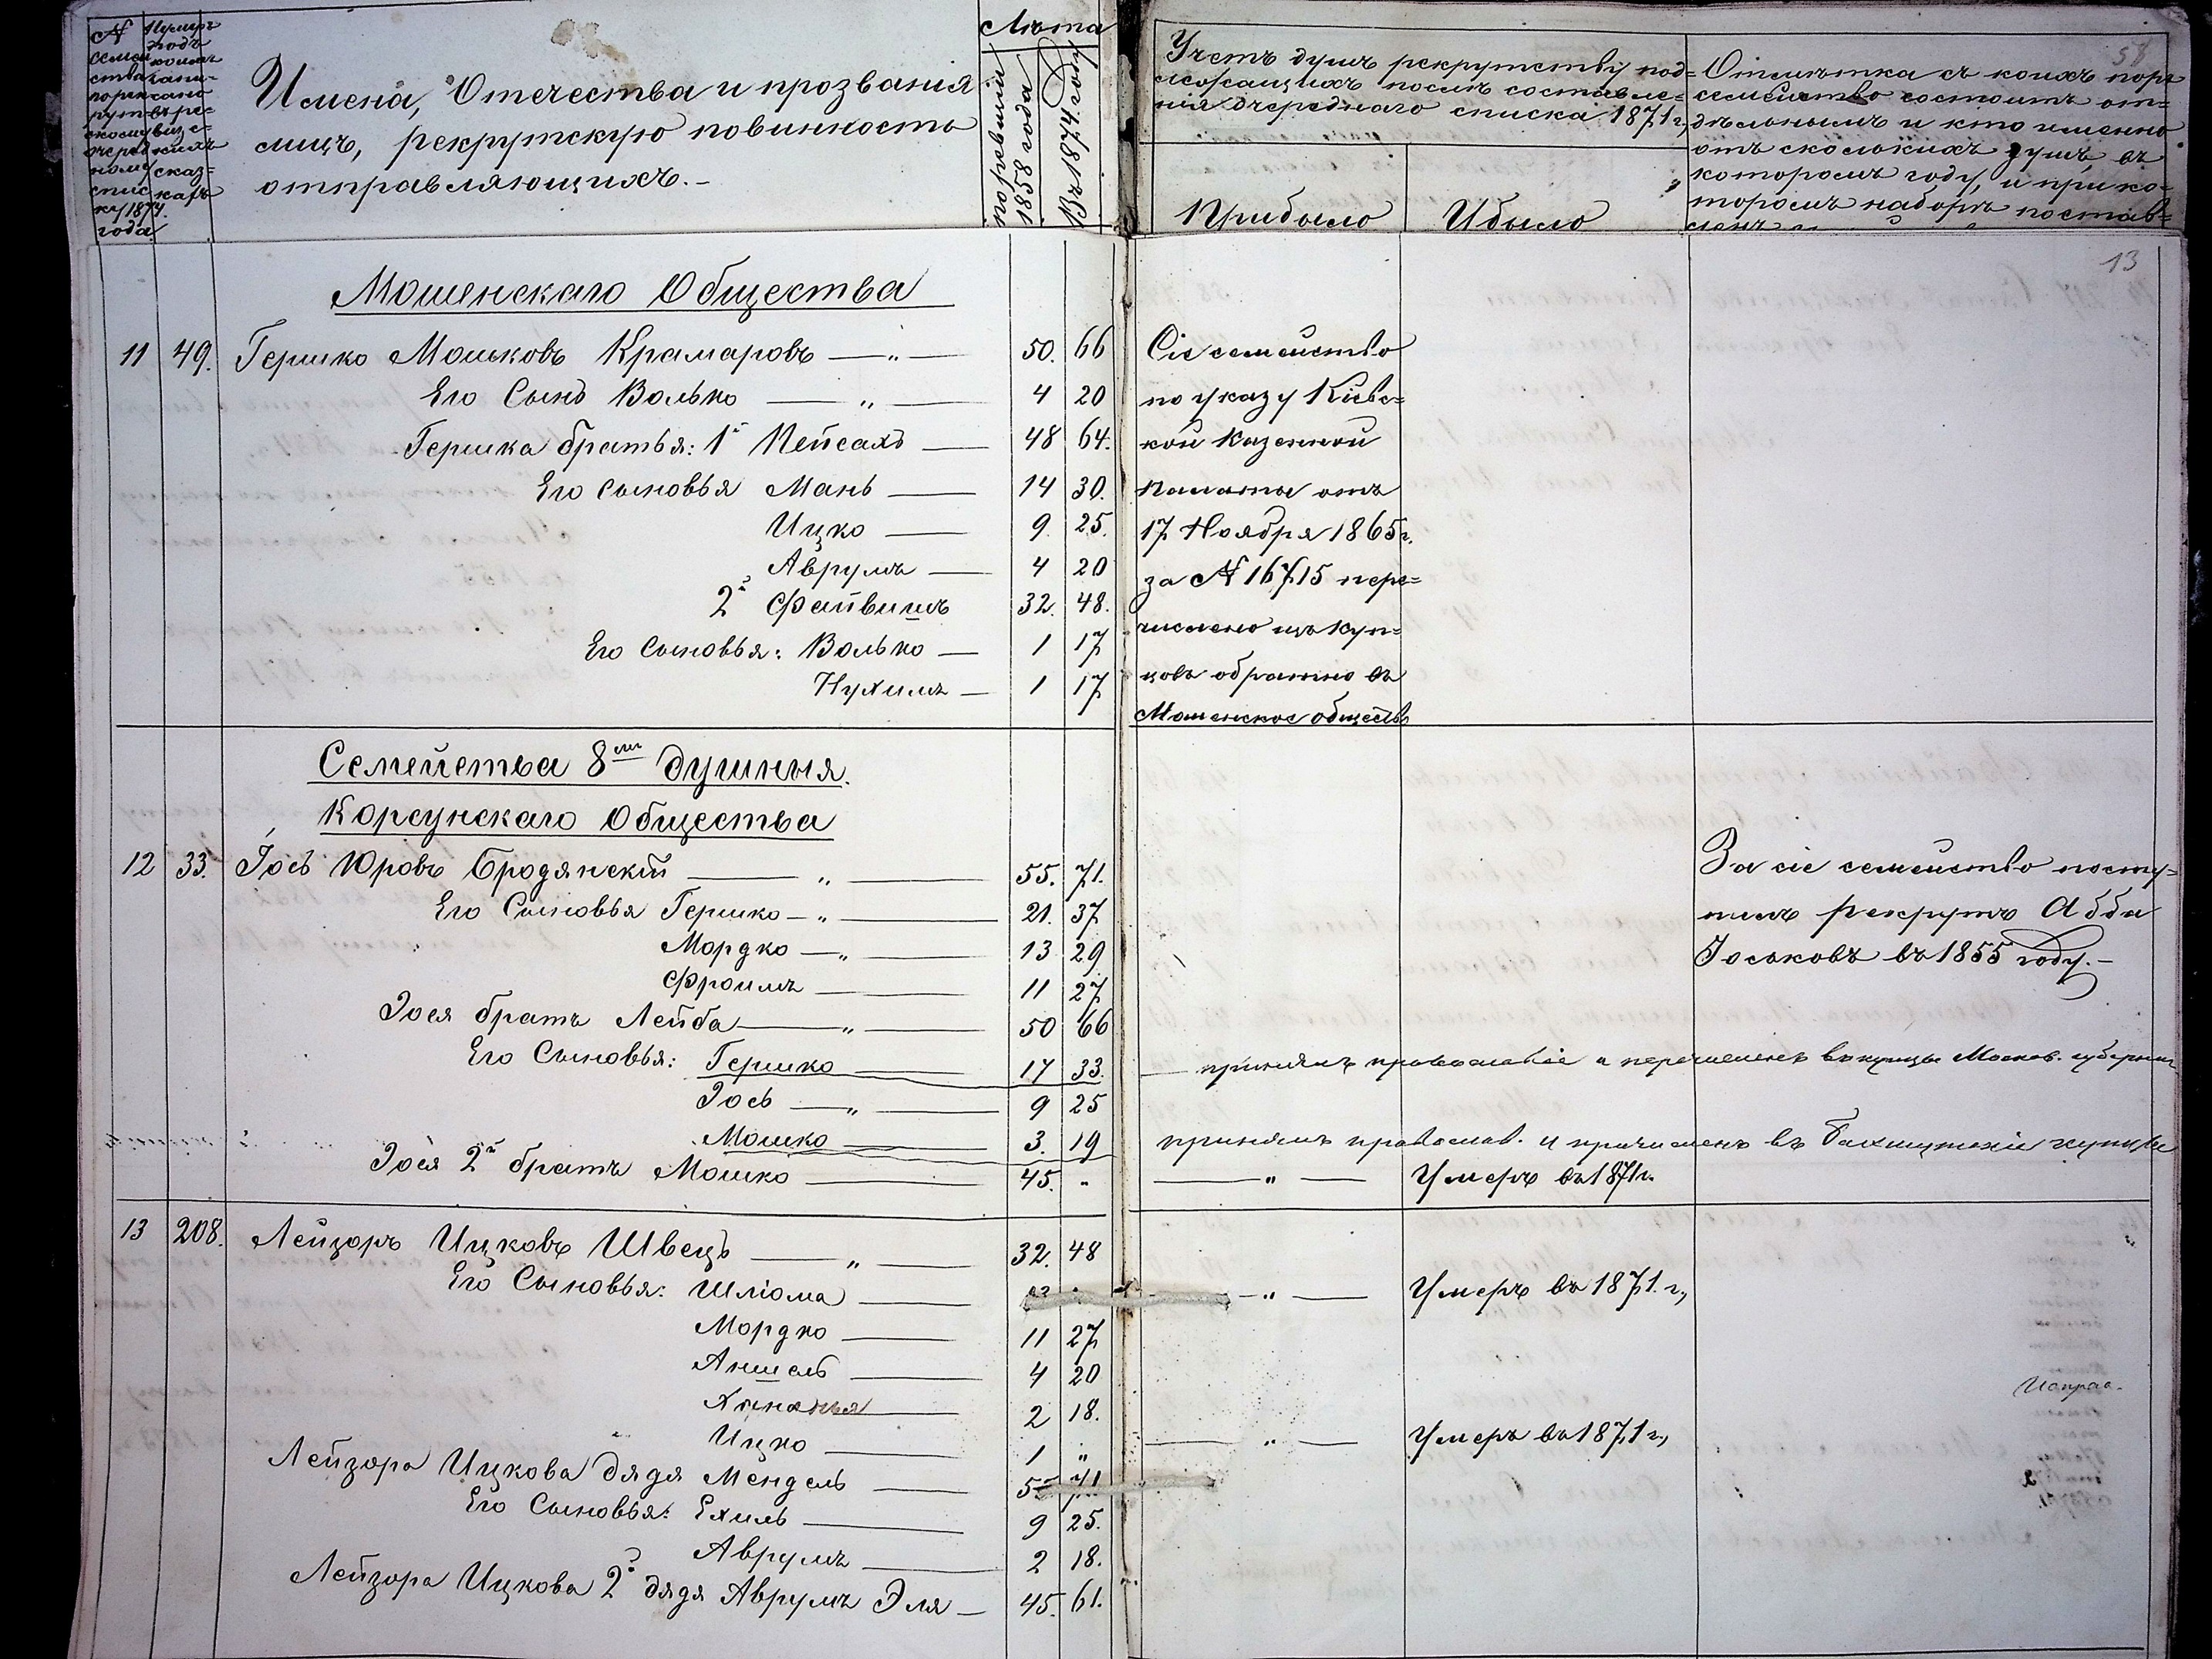 № семейства по рекрутскому очередному списку 1874 года.
Нумеръ подъ коимъ записано въ ревизскихъ сказкахъ
Имена, Отечества и прозванія
лицъ, рекрутскую повинность
отправляющихъ.-
Лѣта
по ревизіи 1858 года
Въ 1874 году
Учетъ душъ рекрутству под=
лежащихъ послѣ составле=
нія очереднаго списка 1871 г.,
Прибыло
Убыло
Отмѣтка съ коихъ поръ
семейство состоитъ от=
дѣльнымъ и кто именно
отъ сколькихъ душъ, въ
которомъ году, и при ко=
торомъ наборѣ постав=
ленъ
58
13
Мошенскаго Общества
11 49. Гершко Мошковъ Крамаровъ —„— 50. 66
Его Сынъ Волько —„— 4 20
Гершка братья: 1й Пейсахъ — 48 64.
Его сыновья Мань — 14 30.
Ицко — 9 25.
Аврумъ — 4 20
2й Файвишъ 32. 48.
Его Сыновья: Волько — 1 17
Нухимъ — 1 17
Сіе семейство
по указу Кіевс=
кой Казенной
Палаты отъ
17 Ноября 1865 г.
за № 16715 пере=
числено изъ куп=
цовъ обратно въ
Мошенское общество
Семейства 8ми душныя.
Корсунскаго Общества
12 33. Іось Юровъ Бродянскій —„— 55. 71.
Его Сыновья Гершко —„— 21. 37
Мордко —„— 13 29
Фроимъ — 11 27
Іося братъ Лейба —„— 50 66
Его Сыновья: Гершко — 17 33. — принялъ православіе и перечисленъ въ купцы Москов. губерніи
Іось —„— 9 25
Мошко — 3. 19 принялъ православ. и причисленъ въ Бахмутскіе купцы
Іося 2й братъ Мошко — 45. - —„— Умеръ въ 1871 г.
За сіе семейство посту=
пилъ рекрутъ Абба
Іоськовъ въ 1855 году.-
13 208. Лейзоръ Ицковъ Швецъ —„— 32. 48
Его Сыновья: Шліома — —„— Умеръ въ 1871. г.,
Мордко — 11 27
Аншель — 4 20
Хананья — 2 18.
Ицко — 1 „ —„— Умеръ въ 1871 г.,
Лейзора Ицкова дядя Мендель — 55 71
Его Сыновья: Ехиль — 9 25.
Аврумъ — 2 18.
Лейзора Ицкова 2й дядя Аврумъ Эля — 45. 61.